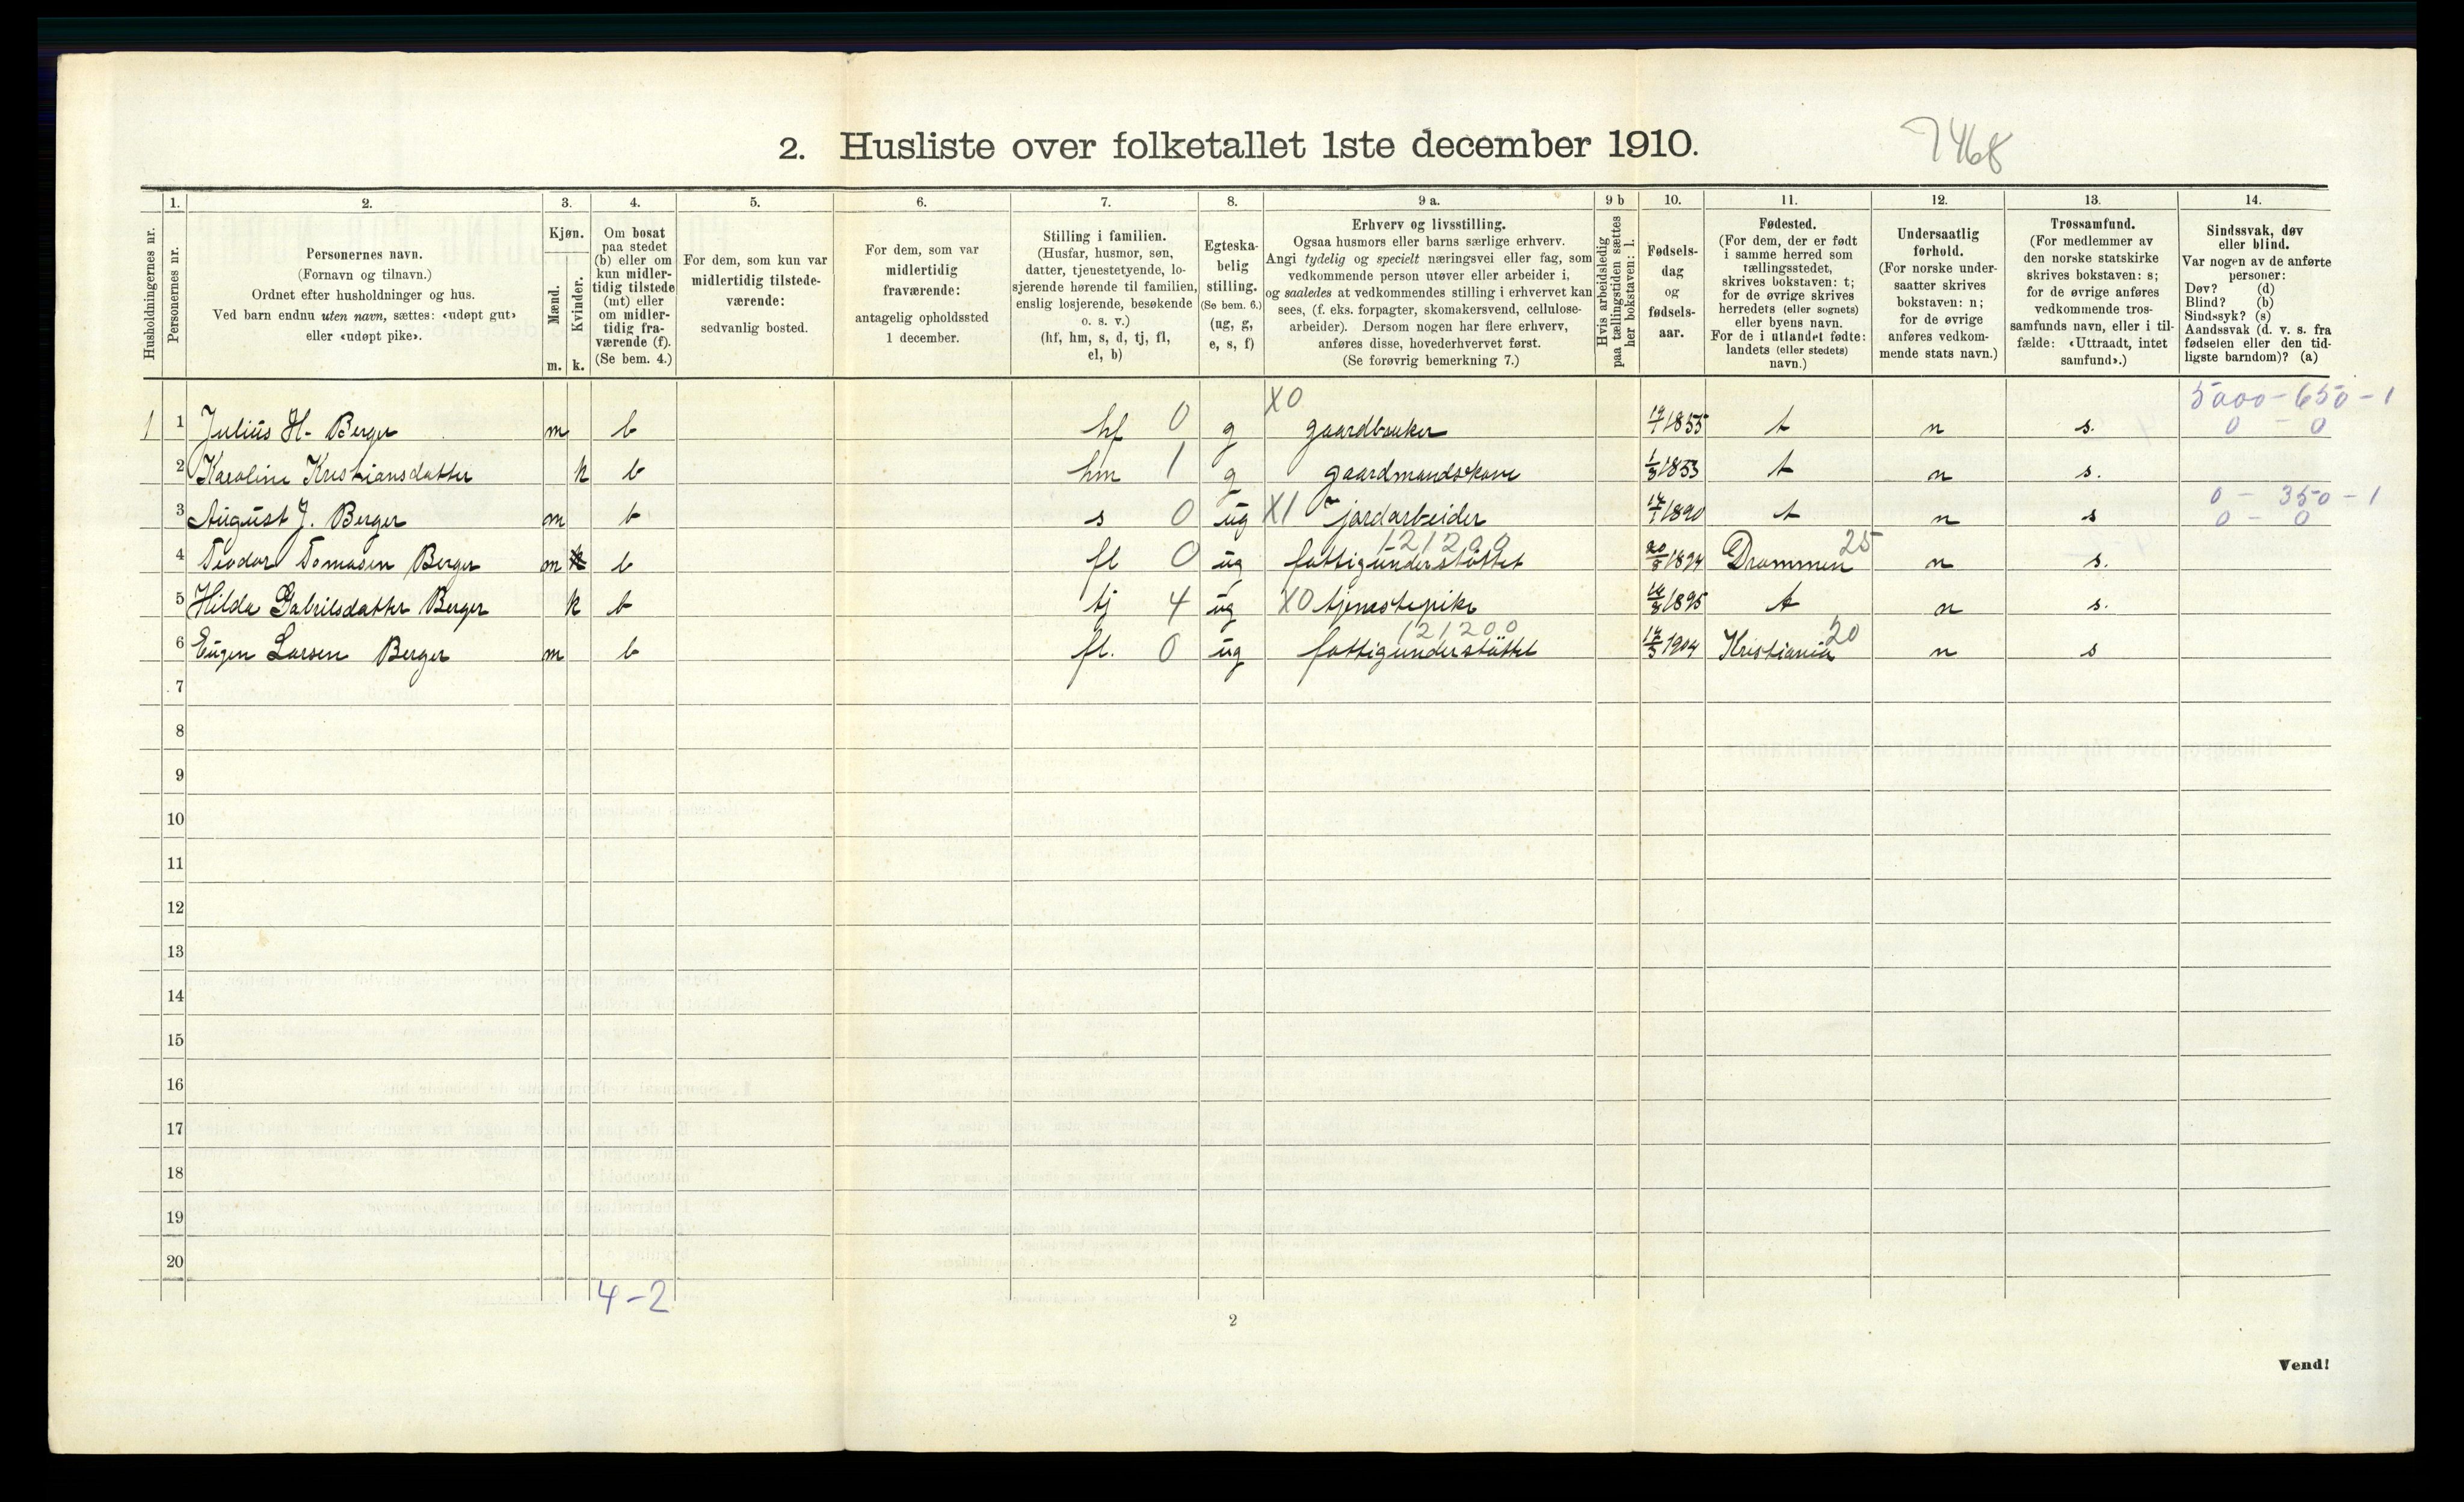 2. Husliste over folketallet 1ste december 1910.
7468
Husholdningernes nr.
1. Personernes nr.
2. Personernes navn.
(Fornavn og tilnavn.)
Ordnet efter husholdninger og hus.
Ved barn endnu uten navn, sættes: «udøpt gut»
eller «udøpt pike».
3. Kjøn.
Mænd. m.
Kvinder. k.
4. Om bosat
paa stedet
(b) eller om
kun midler-
tidig tilstede
(mt) eller
om midler-
tidig fra-
værende (f).
(Se bem. 4.)
5. For dem, som kun var
midlertidig tilstede-
værende:
sedvanlig bosted.
6. For dem, som var
midlertidig
fraværende:
antagelig opholdssted
1 december.
7. Stilling i familien.
(Husfar, husmor, søn,
datter, tjenestetyende, lo-
sjerende hørende til familien,
enslig losjerende, besøkende
o. s. v.)
(hf, hm, s, d, tj, fl,
el, b)
8. Egteska-
belig
stilling.
(Se bem. 6.)
(ug, g,
e, s, f)
9 a. Erhverv og livsstilling.
Ogsaa husmors eller barns særlige erhverv.
Angi tydelig og specielt næringsvei eller fag, som
vedkommende person utøver eller arbeider i,
og saaledes at vedkommendes stilling i erhvervet kan
sees, (f. eks. forpagter, skomakersvend, cellulose-
arbeider). Dersom nogen har flere erhverv,
anføres disse, hovederhvervet først.
(Se forøvrig bemerkning 7.)
9 b Hvis arbeidsledig
paa tællingstiden sættes
her bokstaven: l.
10. Fødsels-
dag
og
fødsels-
aar.
11. Fødested.
(For dem, der er født
i samme herred som
tællingsstedet,
skrives bokstaven: t;
for de øvrige skrives
herredets (eller sognets)
eller byens navn.
For de i utlandet fødte:
landets (eller stedets)
navn.)
12. Undersaatlig
forhold.
(For norske under-
saatter skrives
bokstaven: n;
for de øvrige
anføres vedkom-
mende stats navn.)
13. Trossamfund.
(For medlemmer av
den norske statskirke
skrives bokstaven: s;
for de øvrige anføres
vedkommende tros-
samfunds navn, eller i til-
fælde: «Uttraadt, intet
samfund».)
14. Sindssvak, døv
eller blind.
Var nogen av de anførte
personer:
Døv? (d)
Blind? (b)
Sindssyk? (s)
Aandssvak (d. v. s. fra
fødselen eller den tid-
ligste barndom)? (a)
X0 5000-650-1
1 1 Julius H. Berger m b hf 0 g gaardbruker 1855 t n s. 0 - 0
2 Karoline Kristiansdatter k b hm 1 g gaardmandskone 1853 t n s.
0 - 350-1
3 August J. Berger m b s 0 ug X1 jordarbeider 1890 t n s 0 - 0
121200 25
4 Teodor Tomasen Berger m k b fl 0 ug fattigunderstöttet 1894 Drammen n s.
5 Hilda Gabrilsdatter Berger k b tj 4 ug X0 tjenestepike 1895 t n s.
121200 20
6 Eugen Larsen Berger m b fl. 0 ug fattigunderstöttet 1904 Kristiania n s
7
8
9
10
11
12
13
14
15
16
17
18
19
20
4-2
2
Vend!